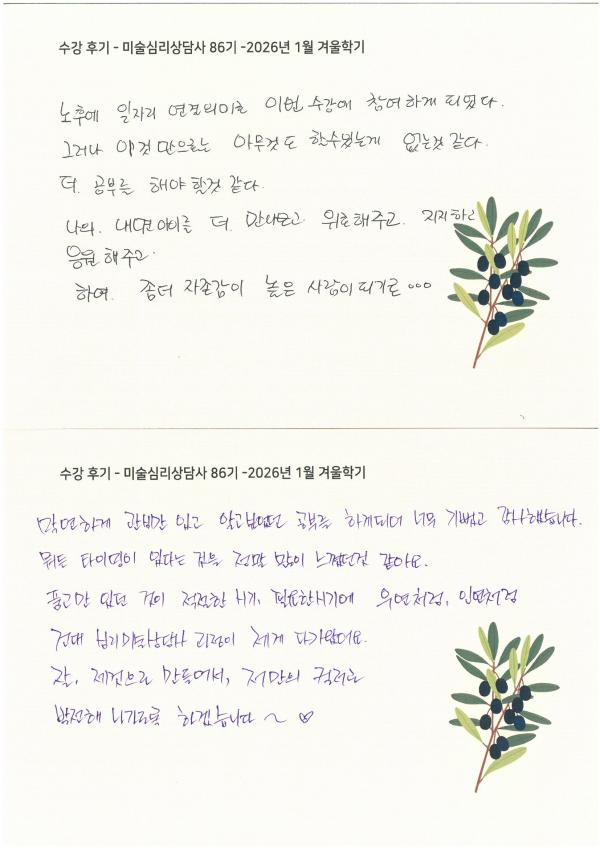 수강 후기 - 미술심리상담사 86기 -2026년 1월 겨울학기
노후에 일자리 연결의미로 이번 수강에 참여하게 되었다.
그러나 이것만으로는 아무것도 할수있는게 없는것 같다.
더. 공부를 해야 할것 같다.
나의. 내면아이를 더. 만나보고 위로해주고. 지지하고
응원해주고.
하여. 좀더 자존감이 높은 사람이 되기로 ...
수강 후기 - 미술심리상담사 86기 -2026년 1월 겨울학기
막연하게 관심만 있고 알고싶었던 공부를 하게되어 너무 기뻤고 감사했습니다.
뭐든 타이밍이 있다는 것을 정말 많이 느꼈던것 같아요.
품고만 있던 것이 적절한 시기, 필요한시기에 우연처럼, 인연처럼
건대 심리미술상담사 과정이 제게 다가왔어요.
잘, 제것으로 만들어서, 저만의 컬러로
발전해 나가도록 하겠습니다 ~ ♡